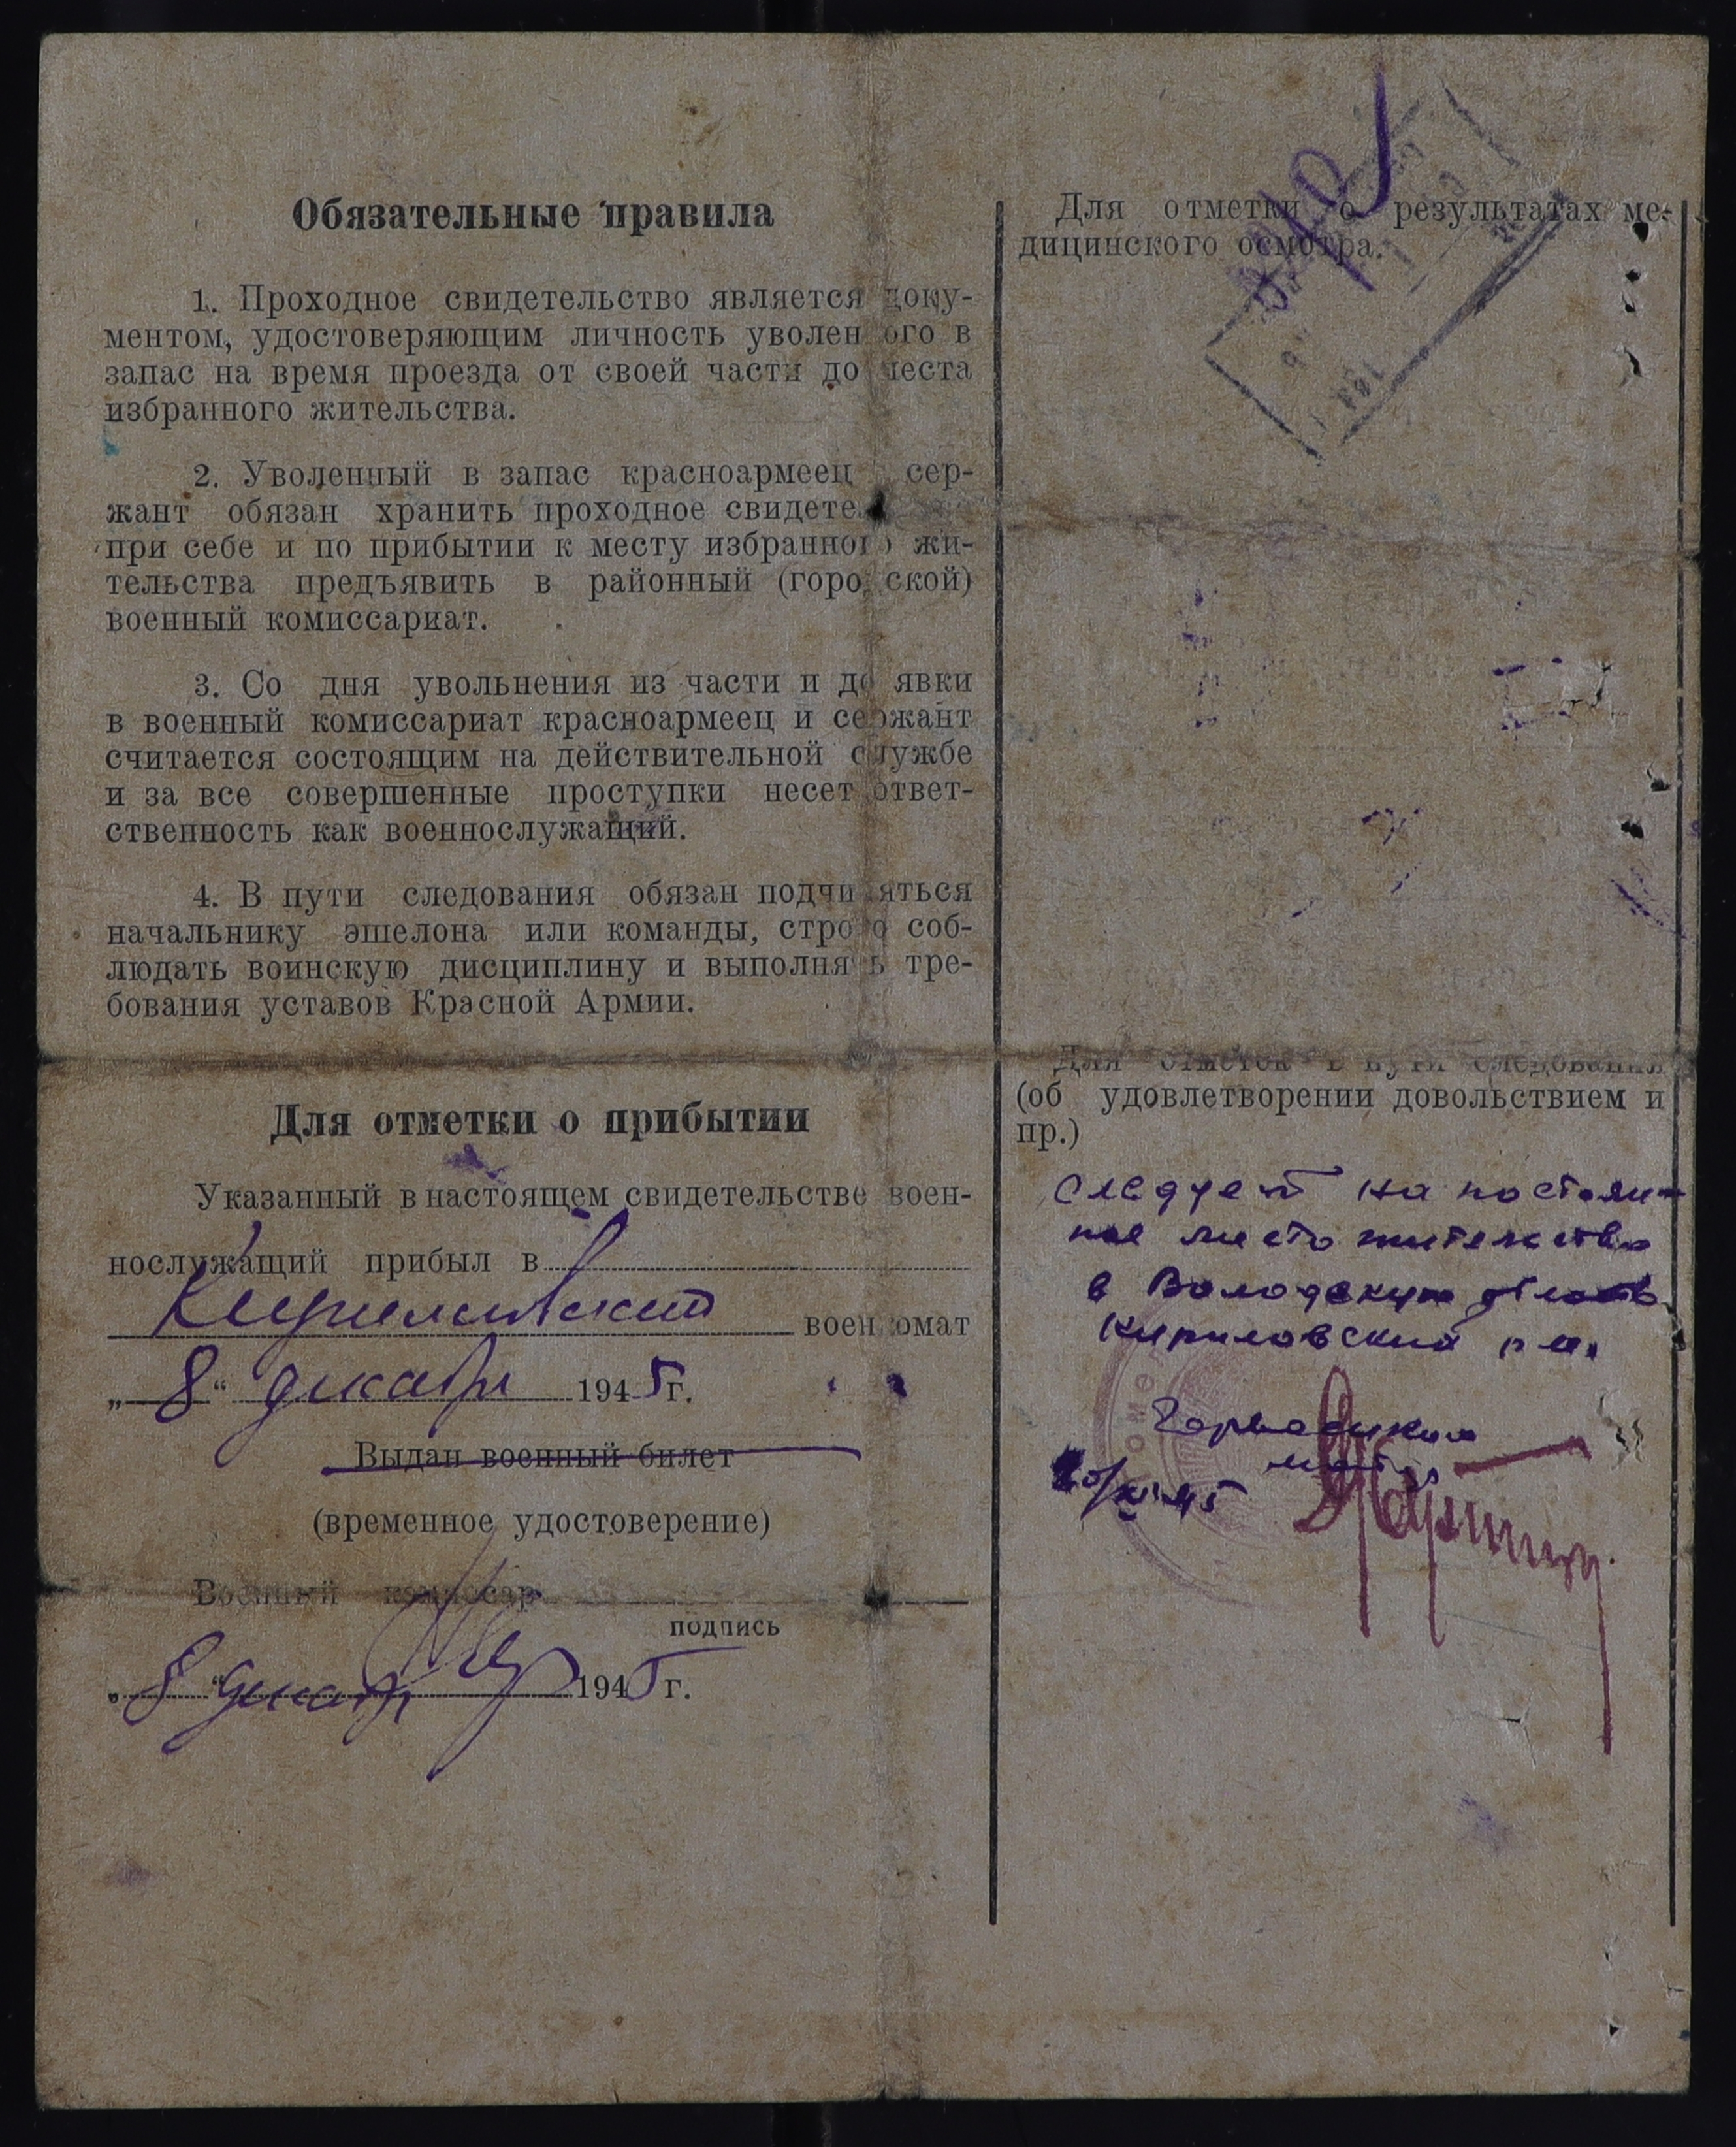 Обязательные правила
1. Проходное свидетельство является доку-
ментом, удостоверяющим личность уволенного в
запас на время проезда от своей части до места
избранного жительства.
2. Уволенный в запас красноармеец сер-
жант обязан хранить проходное свидете
при себе и по прибытии к месту избранного жи-
тельства предъявить в районный (городской)
военный комиссариат.
3. Со дня увольнения из части и до явки
в военный комиссариат красноармеец и сержант
считается состоящим на действительной службе
и за все совершенные проступки несет ответ-
ственность как военнослужащий.
4. В пути следования обязан подчиняться
начальнику эшелона или команды, строго соб-
людать воинскую дисциплину и выполнять тре-
бования уставов Красной Армии.
Для отметки о прибытии
Указанный в настоящем свидетельстве воен-
нослужащий прибыл в
Кирилловский военкомат
„8“ декабря 1945 г.
Выдан военный билет
(временное удостоверение)
Военный комиссар
подпись
„8“ декабря 1945 г.
Для отметки о результатах ме-
дицинского осмотра.
Для отметок в пути следования
(об удовлетворении довольствием и
пр.)
следует на постоян-
ное место жительства
в Вологодскую область
Кирилловский р-н.